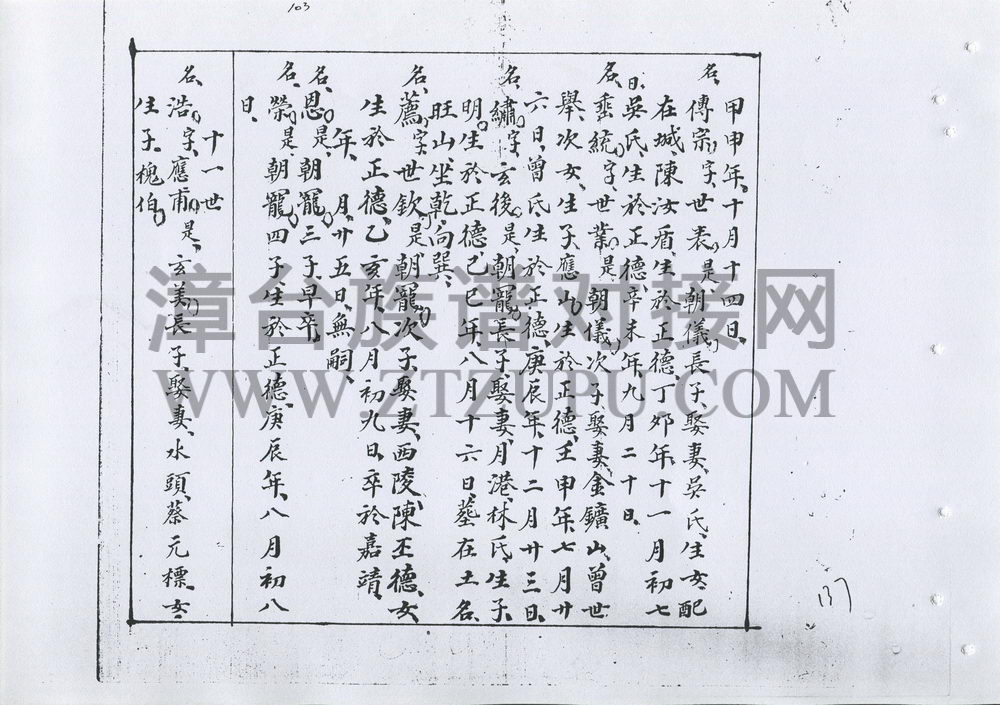 103
甲申年、十月十四日、
名、傳宗、字、世表、是、朝儀長子、娶妻、吳氏、生女、配
在城、陳汝盾、生於正德丁卯年、十一月初七
日、吳氏、生於正德、辛未年、九月二十日、
名、垂統、字、世業、是、朝儀次子、娶妻、金鑛山、曾世
舉、次女、生子、應山、生於正德、壬申年、七月廿
六日、曾氏、生於正德、庚辰年、十二月廿三日、
名、繡、字、玄後、是、朝寵長子、娶妻、月港、林氏、生子、
明、生於正德、己巳年、八月十六日、墓在土名、
旺山、坐乾、向巽、
名、薦、字、世欽、是、朝寵、次子、娶妻、西陵、陳玉德、女
生於正德、乙亥年、八月初九日、卒於嘉靖、
年、月、廿五日、無嗣、
名、恩、是、朝寵、三子、早卒、
名、榮、是朝寵、四子、生於正德、庚辰年、八月初八
日、
十一世
名、浩、字、應甫、是、玄美、長子、娶妻、水頭、蔡元標、女、
生子、槐伯、
137
漳台族谱对接网
WWW.ZTZUPU.COM